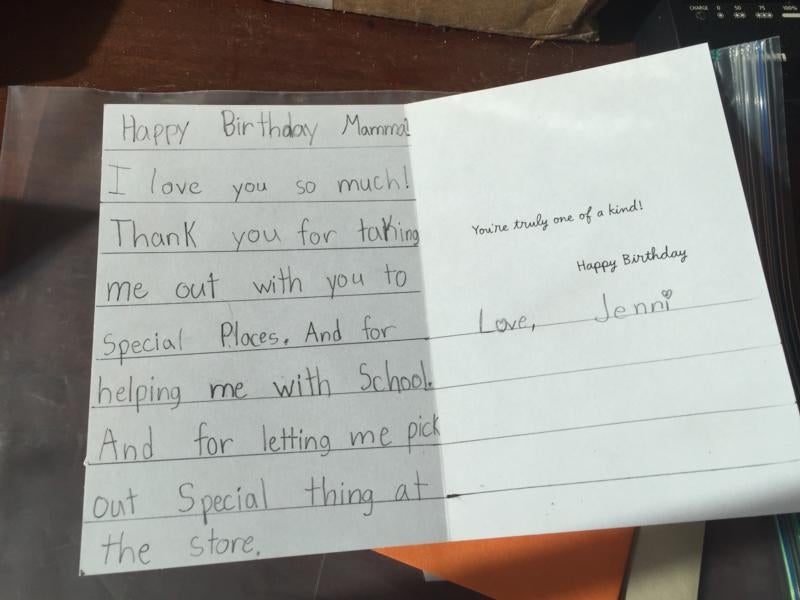 CHARGE 0 50 75 100%
Happy Birthday Mamma!
I love you so much!
Thank you for taking
me out with you to
Special Places. And for
helping me with School.
And for letting me pick
out Special thing at
the store.
You're truly one of a kind!
Happy Birthday
Love, Jenni